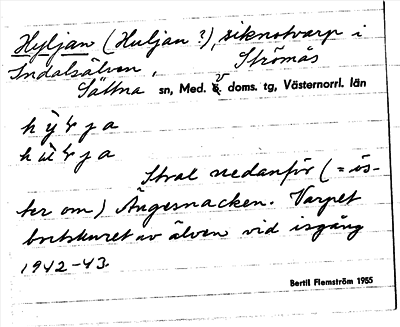 Hyljan (Huljan ?), siknotvarp i
Indalsälven, Strömås
Sättna sn, Med. v. doms. tg, Västernorrl. län
Stral nedanför (= ös-
ter om) Ängesnacken. Varpet
bortskuret av älven vid isgång
1942-43.
Bertil Flemström 1955